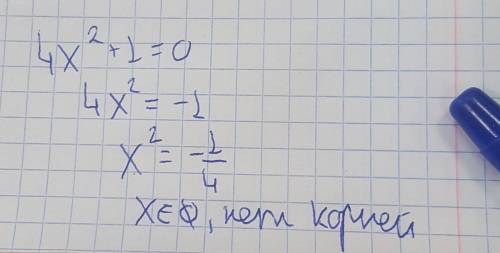 4x² + 1 = 0
4x² = -1
x² = -1/4
x∈∅, нет корней